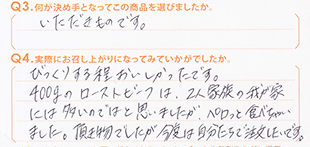 Q3.何が決め手となってこの商品を選びましたか。
いただきものです。
Q4.実際にお召し上がりになってみていかがでしたか。
びっくりする程おいしかったです。
400gのローストビーフは、2人家族の我が家
には多いのではと思いましたが、ペロっと食べちゃい
ました。頂き物でしたが今度は自分たちで注文したいです。